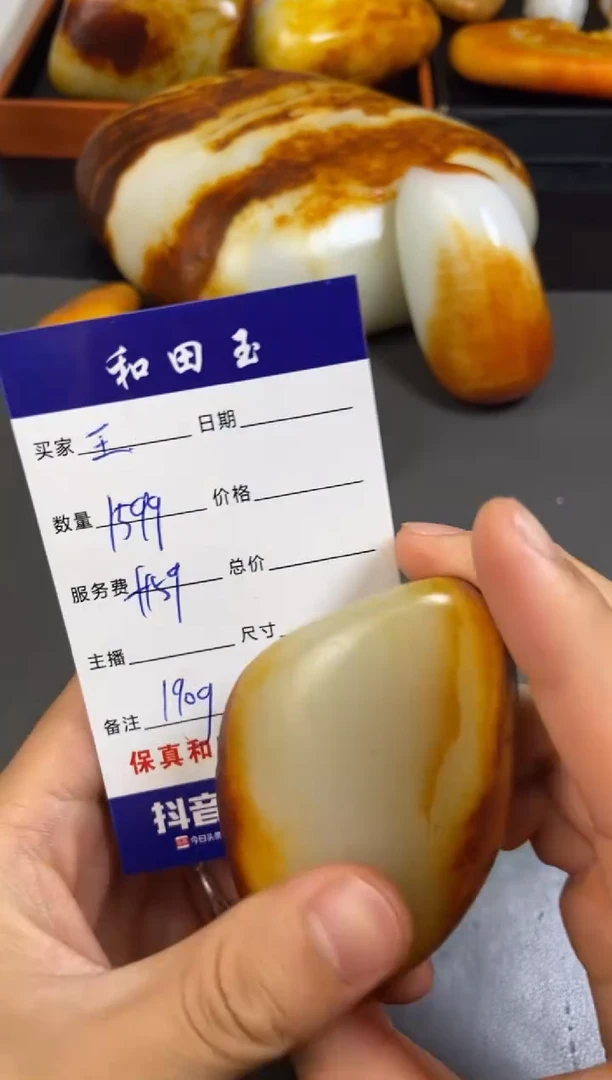 和田玉
买家 王 日期
数量 1599 价格
服务费 总价
主播 尺寸
备注 190g
保真和
抖音
今日头条